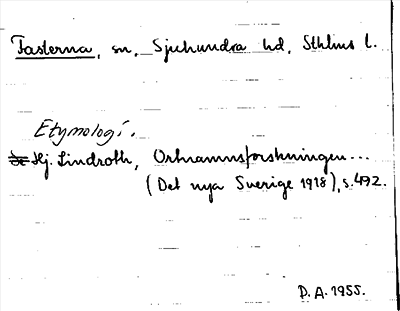 Fasterna, sn, Sjuhundra hd, Sthlms l.
Etymologi.
Hj. Lindroth, Ortnamnsforskningen...
(Det nya Sverige 1918), s. 492.
D. A. 1955.